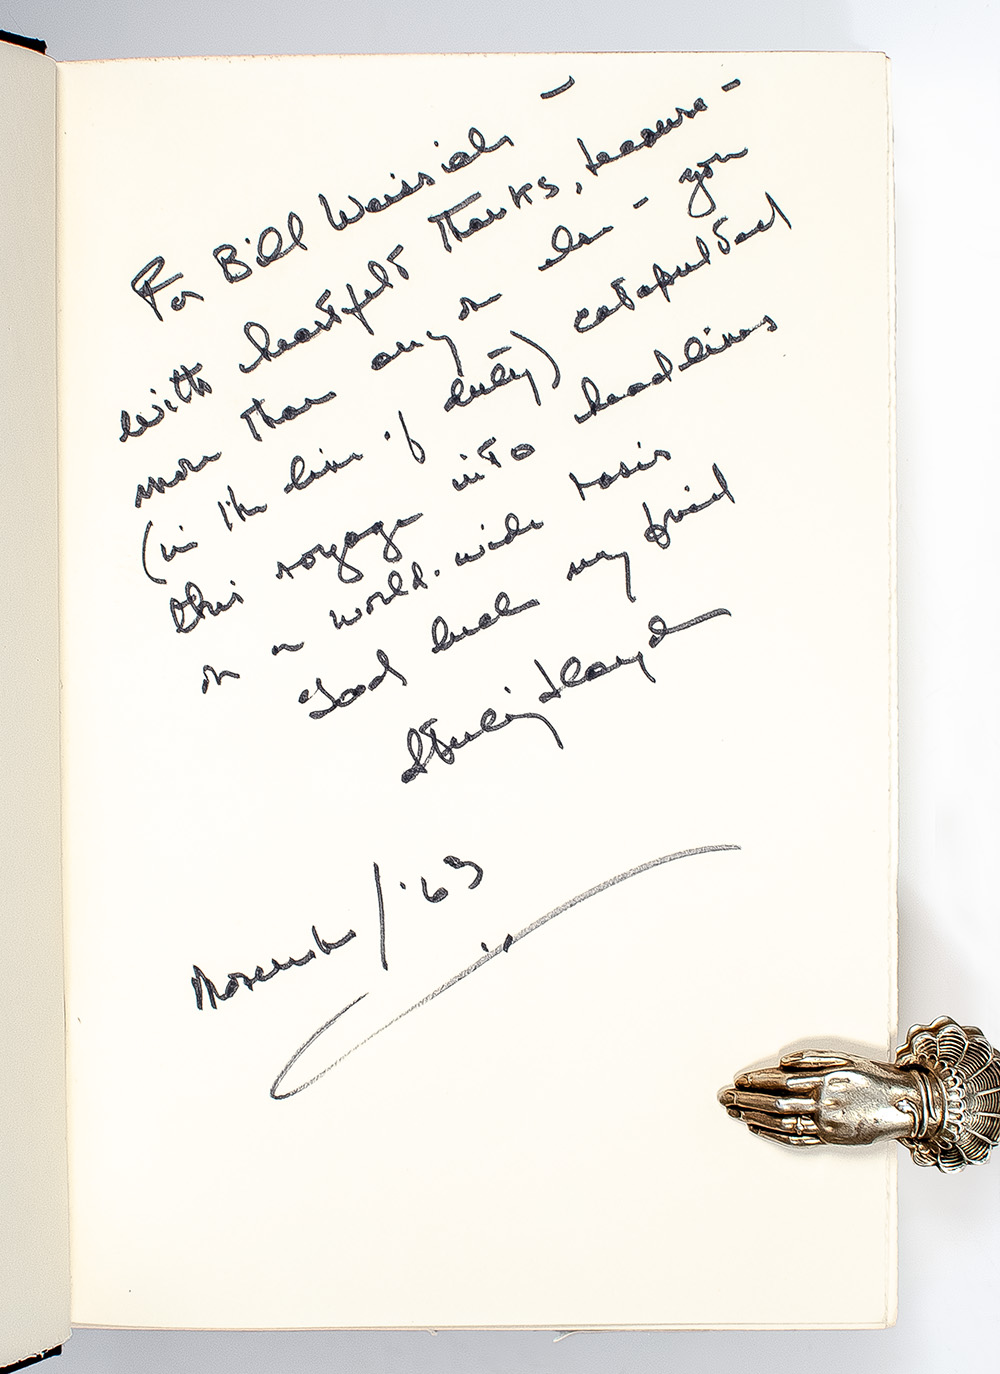 For Bill —
with heartfelt thanks, because —
more than anyone else — you
(in the line of duty) catapulted
this voyage into headlines
on a world-wide basis
Good luck my friend
Sterling Hayden
November / '63